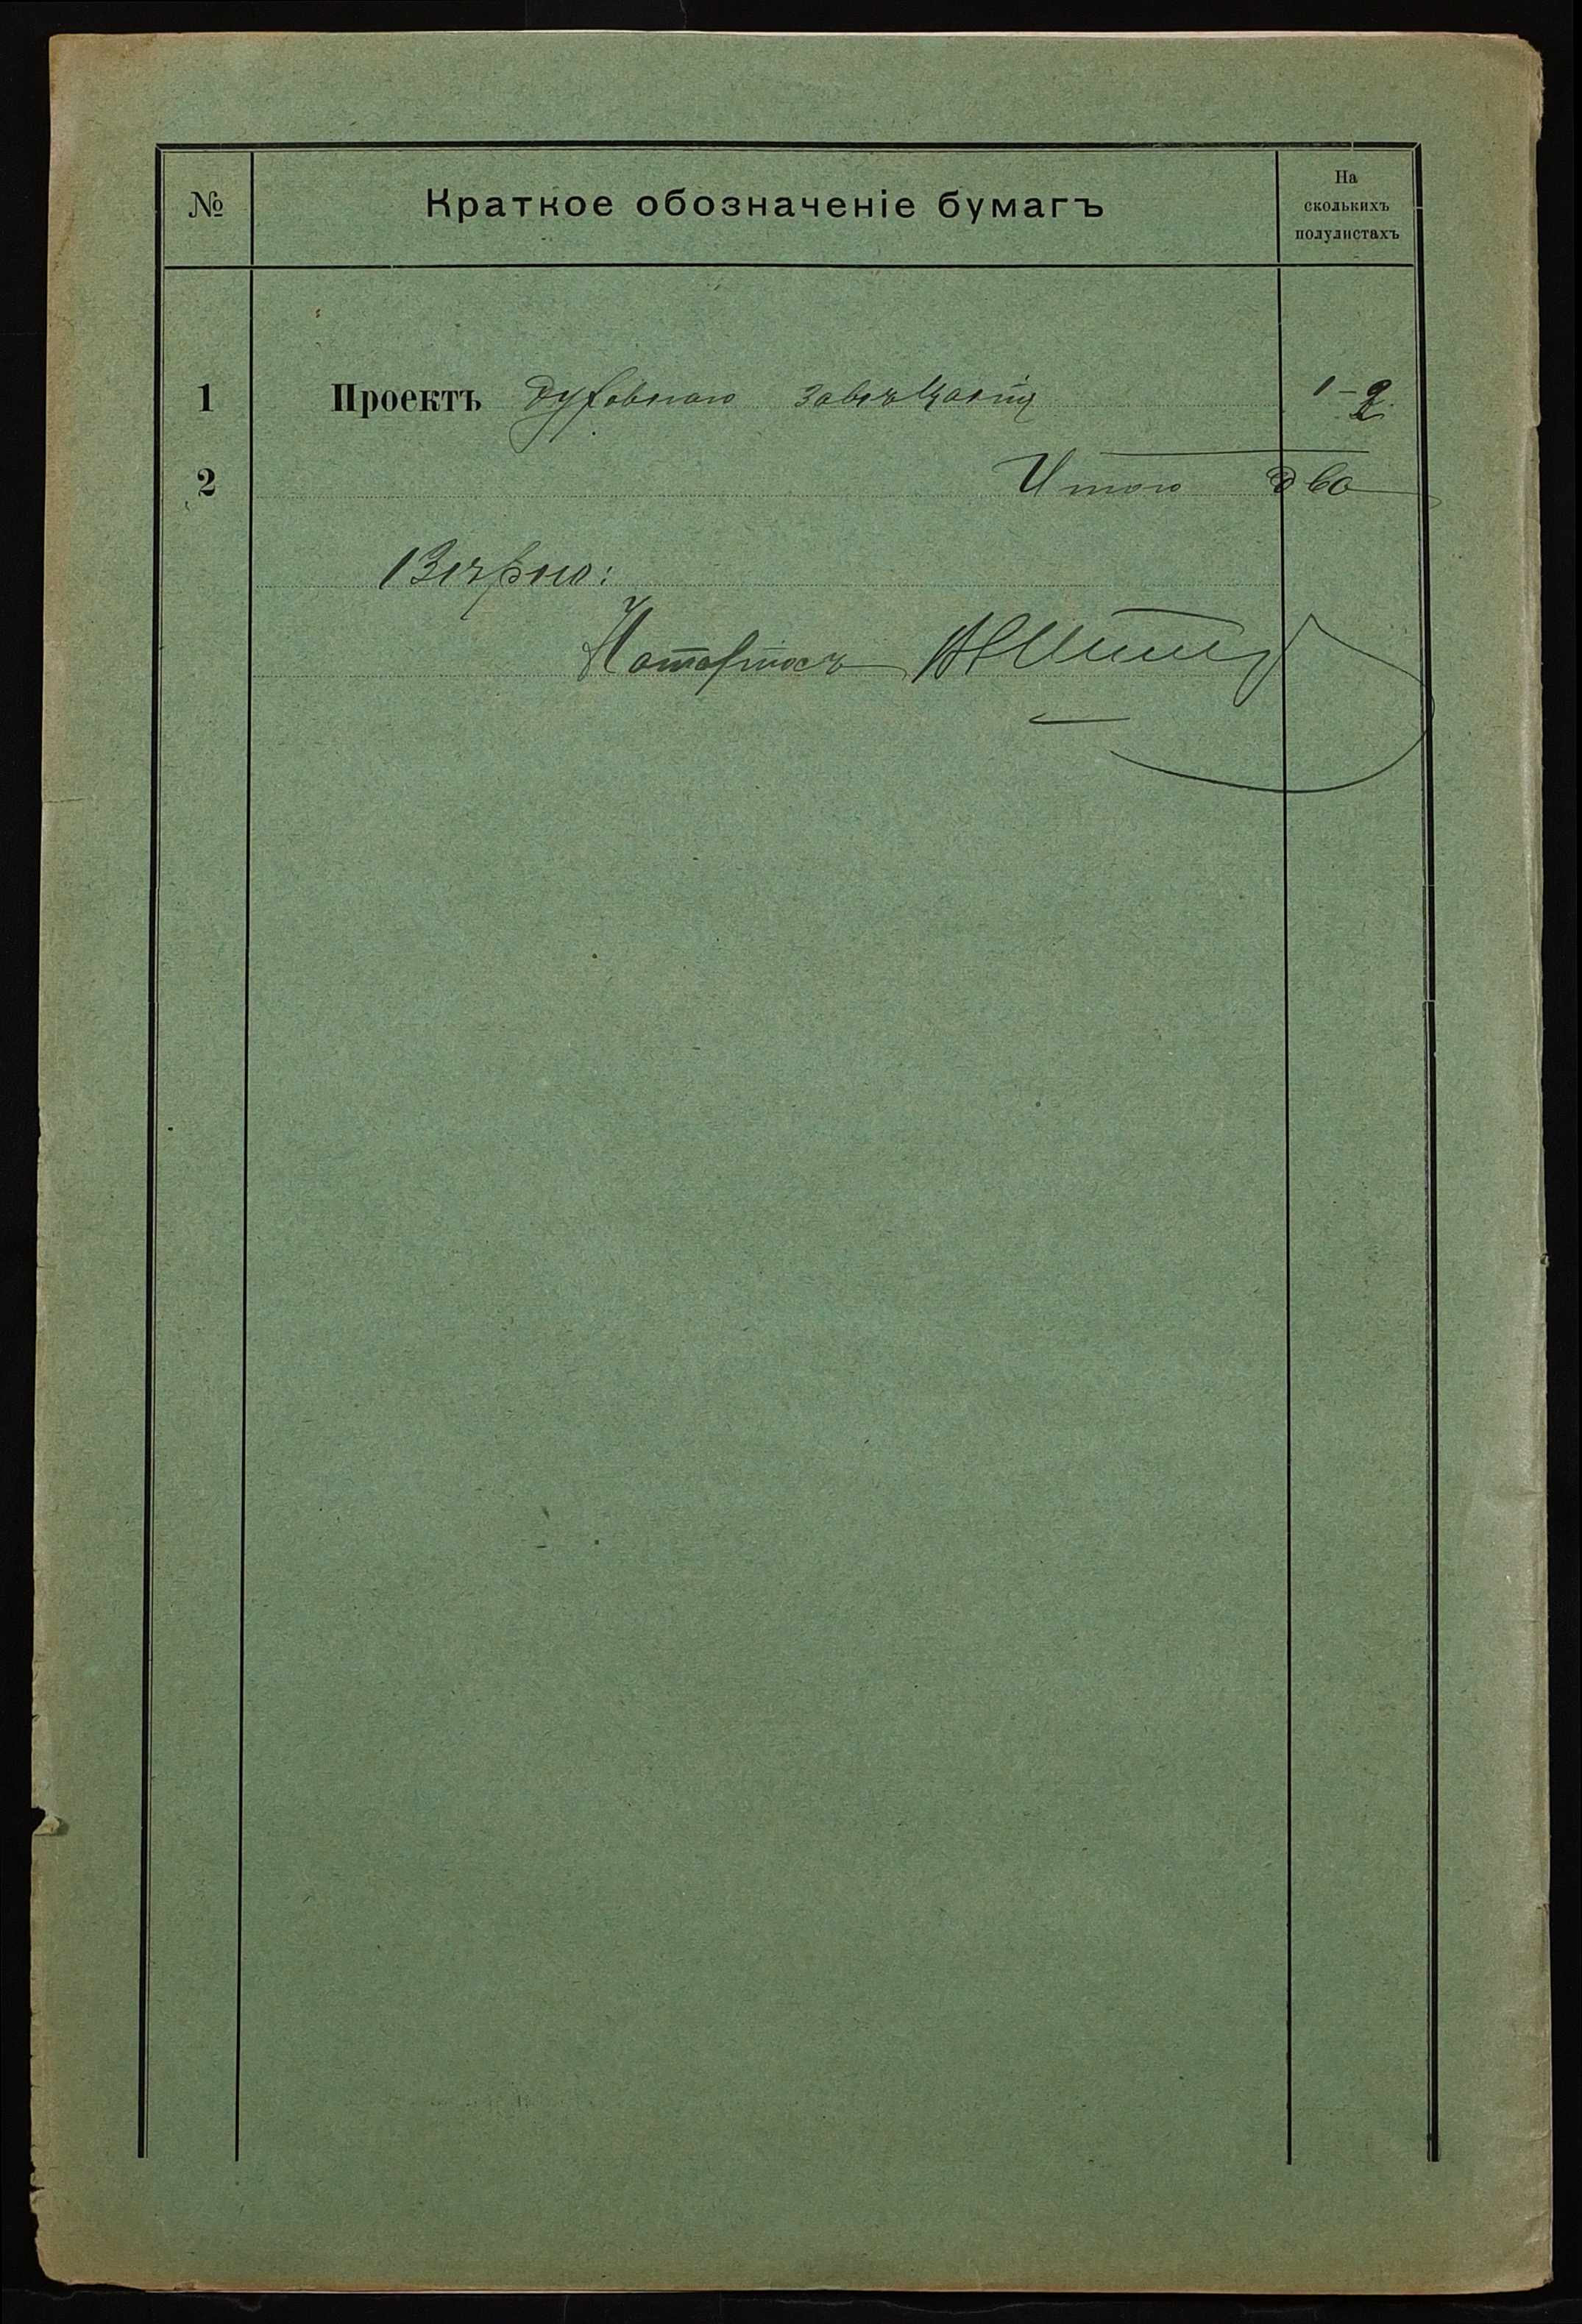 № Краткое обозначеніе бумагъ На
сколькихъ
полулистахъ
1 Проектъ духовнаго завѣщанія 1-2.
2 Итого два
Вѣрно:
Нотаріусъ